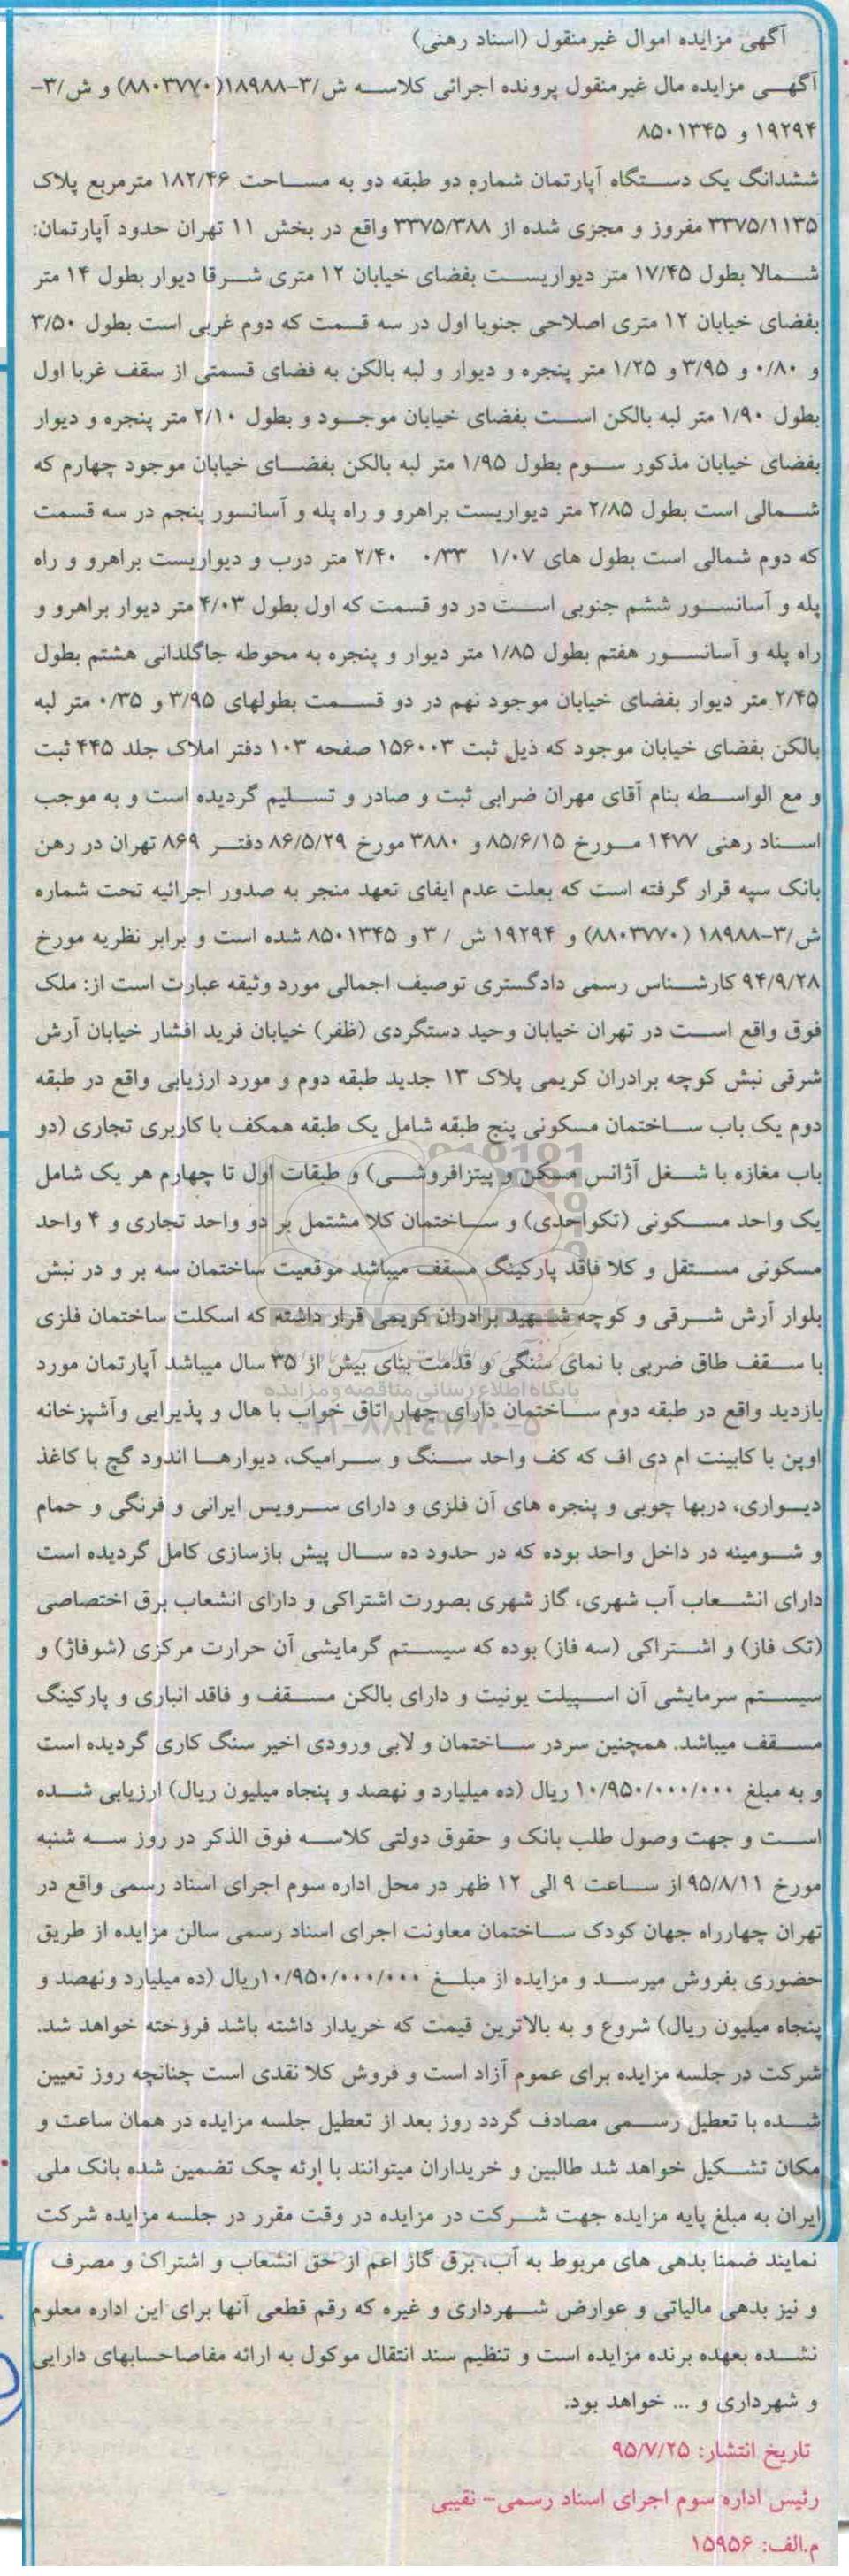 آگهی مزایده اموال غیرمنقول (اسناد رهنی)
آگهی مزایده مال غیرمنقول پرونده اجرائی کلاسه ش/۳-۱۸۹۸۸(۸۸۰۳۷۷۰) و ش/۳-
۱۹۲۹۴ و ۸۵۰۱۳۴۵
ششدانگ یک دستگاه آپارتمان شماره دو طبقه دو به مساحت ۱۸۲/۴۶ مترمربع پلاک
۳۳۷۵/۱۱۳۵ مفروز و مجزی شده از ۳۳۷۵/۳۸۸ واقع در بخش ۱۱ تهران حدود آپارتمان:
شمالا بطول ۱۷/۴۵ متر دیواریست بفضای خیابان ۱۲ متری شرقا دیوار بطول ۱۴ متر
بفضای خیابان ۱۲ متری اصلاحی جنوبا اول در سه قسمت که دوم غربی است بطول ۳/۵۰
و ۰/۸۰ و ۳/۹۵ و ۱/۲۵ متر پنجره و دیوار و لبه بالکن به فضای قسمتی از سقف غربا اول
بطول ۱/۹۰ متر لبه بالکن است بفضای خیابان موجود و بطول ۲/۱۰ متر پنجره و دیوار
بفضای خیابان مذکور سوم بطول ۱/۹۵ متر لبه بالکن بفضای خیابان موجود چهارم که
شمالی است بطول ۲/۸۵ متر دیواریست براهرو و راه پله و آسانسور پنجم در سه قسمت
که دوم شمالی است بطول های ۱/۰۷ ۰/۳۳ ۲/۴۰ متر درب و دیواریست براهرو و راه
پله و آسانسور ششم جنوبی است در دو قسمت که اول بطول ۴/۰۳ متر دیوار براهرو و
راه پله و آسانسور هفتم بطول ۱/۸۵ متر دیوار و پنجره به محوطه جاگلدانی هشتم بطول
۲/۴۵ متر دیوار بفضای خیابان موجود نهم در دو قسمت بطولهای ۳/۹۵ و ۰/۳۵ متر لبه
بالکن بفضای خیابان موجود که ذیل ثبت ۱۵۶۰۰۳ صفحه ۱۰۳ دفتر املاک جلد ۴۴۵ ثبت
و مع الواسطه بنام آقای مهران ضرابی ثبت و صادر و تسلیم گردیده است و به موجب
اسناد رهنی ۱۴۷۷ مورخ ۸۵/۶/۱۵ و ۳۸۸۰ مورخ ۸۶/۵/۲۹ دفتر ۸۶۹ تهران در رهن
بانک سپه قرار گرفته است که بعلت عدم ایفای تعهد منجر به صدور اجرائیه تحت شماره
ش/۳-۱۸۹۸۸ (۸۸۰۳۷۷۰) و ۱۹۲۹۴ ش / ۳ و ۸۵۰۱۳۴۵ شده است و برابر نظریه مورخ
۹۴/۹/۲۸ کارشناس رسمی دادگستری توصیف اجمالی مورد وثیقه عبارت است از: ملک
فوق واقع است در تهران خیابان وحید دستگردی (ظفر) خیابان فرید افشار خیابان آرش
شرقی نبش کوچه برادران کریمی پلاک ۱۳ جدید طبقه دوم و مورد ارزیابی واقع در طبقه
دوم یک باب ساختمان مسکونی پنج طبقه شامل یک طبقه همکف با کاربری تجاری (دو
باب مغازه با شغل آژانس مسکن و پیتزافروشی) و طبقات اول تا چهارم هر یک شامل
یک واحد مسکونی (تکواحدی) و ساختمان کلا مشتمل بر دو واحد تجاری و ۴ واحد
مسکونی مستقل و کلا فاقد پارکینگ مسقف میباشد موقعیت ساختمان سه بر و در نبش
بلوار آرش شرقی و کوچه شهید برادران کریمی قرار داشته که اسکلت ساختمان فلزی
با سقف طاق ضربی با نمای سنگی و قدمت بنای بیش از ۳۵ سال میباشد آپارتمان مورد
بازدید واقع در طبقه دوم ساختمان دارای چهار اتاق خواب با هال و پذیرایی وآشپزخانه
اوپن با کابینت ام دی اف که کف واحد سنگ و سرامیک، دیوارها اندود گچ با کاغذ
دیواری، دربها چوبی و پنجره های آن فلزی و دارای سرویس ایرانی و فرنگی و حمام
و شومینه در داخل واحد بوده که در حدود ده سال پیش بازسازی کامل گردیده است
دارای انشعاب آب شهری، گاز شهری بصورت اشتراکی و دارای انشعاب برق اختصاصی
(تک فاز) و اشتراکی (سه فاز) بوده که سیستم گرمایشی آن حرارت مرکزی (شوفاژ) و
سیستم سرمایشی آن اسپیلت یونیت و دارای بالکن مسقف و فاقد انباری و پارکینگ
مسقف میباشد. همچنین سردر ساختمان و لابی ورودی اخیر سنگ کاری گردیده است
و به مبلغ ۱۰/۹۵۰/۰۰۰/۰۰۰ ریال (ده میلیارد و نهصد و پنجاه میلیون ریال) ارزیابی شده
است و جهت وصول طلب بانک و حقوق دولتی کلاسه فوق الذکر در روز سه شنبه
مورخ ۹۵/۸/۱۱ از ساعت ۹ الی ۱۲ ظهر در محل اداره سوم اجرای اسناد رسمی واقع در
تهران چهارراه جهان کودک ساختمان معاونت اجرای اسناد رسمی سالن مزایده از طریق
حضوری بفروش میرسد و مزایده از مبلغ ۱۰/۹۵۰/۰۰۰/۰۰۰ریال (ده میلیارد ونهصد و
پنجاه میلیون ریال) شروع و به بالاترین قیمت که خریدار داشته باشد فروخته خواهد شد.
شرکت در جلسه مزایده برای عموم آزاد است و فروش کلا نقدی است چنانچه روز تعیین
شده با تعطیل رسمی مصادف گردد روز بعد از تعطیل جلسه مزایده در همان ساعت و
مکان تشکیل خواهد شد طالبین و خریداران میتوانند با ارئه چک تضمین شده بانک ملی
ایران به مبلغ پایه مزایده جهت شرکت در مزایده در وقت مقرر در جلسه مزایده شرکت
نمایند ضمنا بدهی های مربوط به آب، برق گاز اعم از حق انشعاب و اشتراک و مصرف
و نیز بدهی مالیاتی و عوارض شهرداری و غیره که رقم قطعی آنها برای این اداره معلوم
نشده بعهده برنده مزایده است و تنظیم سند انتقال موکول به ارائه مفاصاحسابهای دارایی
و شهرداری و ... خواهد بود.
تاریخ انتشار: ۹۵/۷/۲۵
رئیس اداره سوم اجرای اسناد رسمی- نقیبی
م.الف: ۱۵۹۵۶
پایگاه اطلاع رسانی مناقصه و مزایده
۰۲۱-۸۸۳۴۹۶۷۰-۵